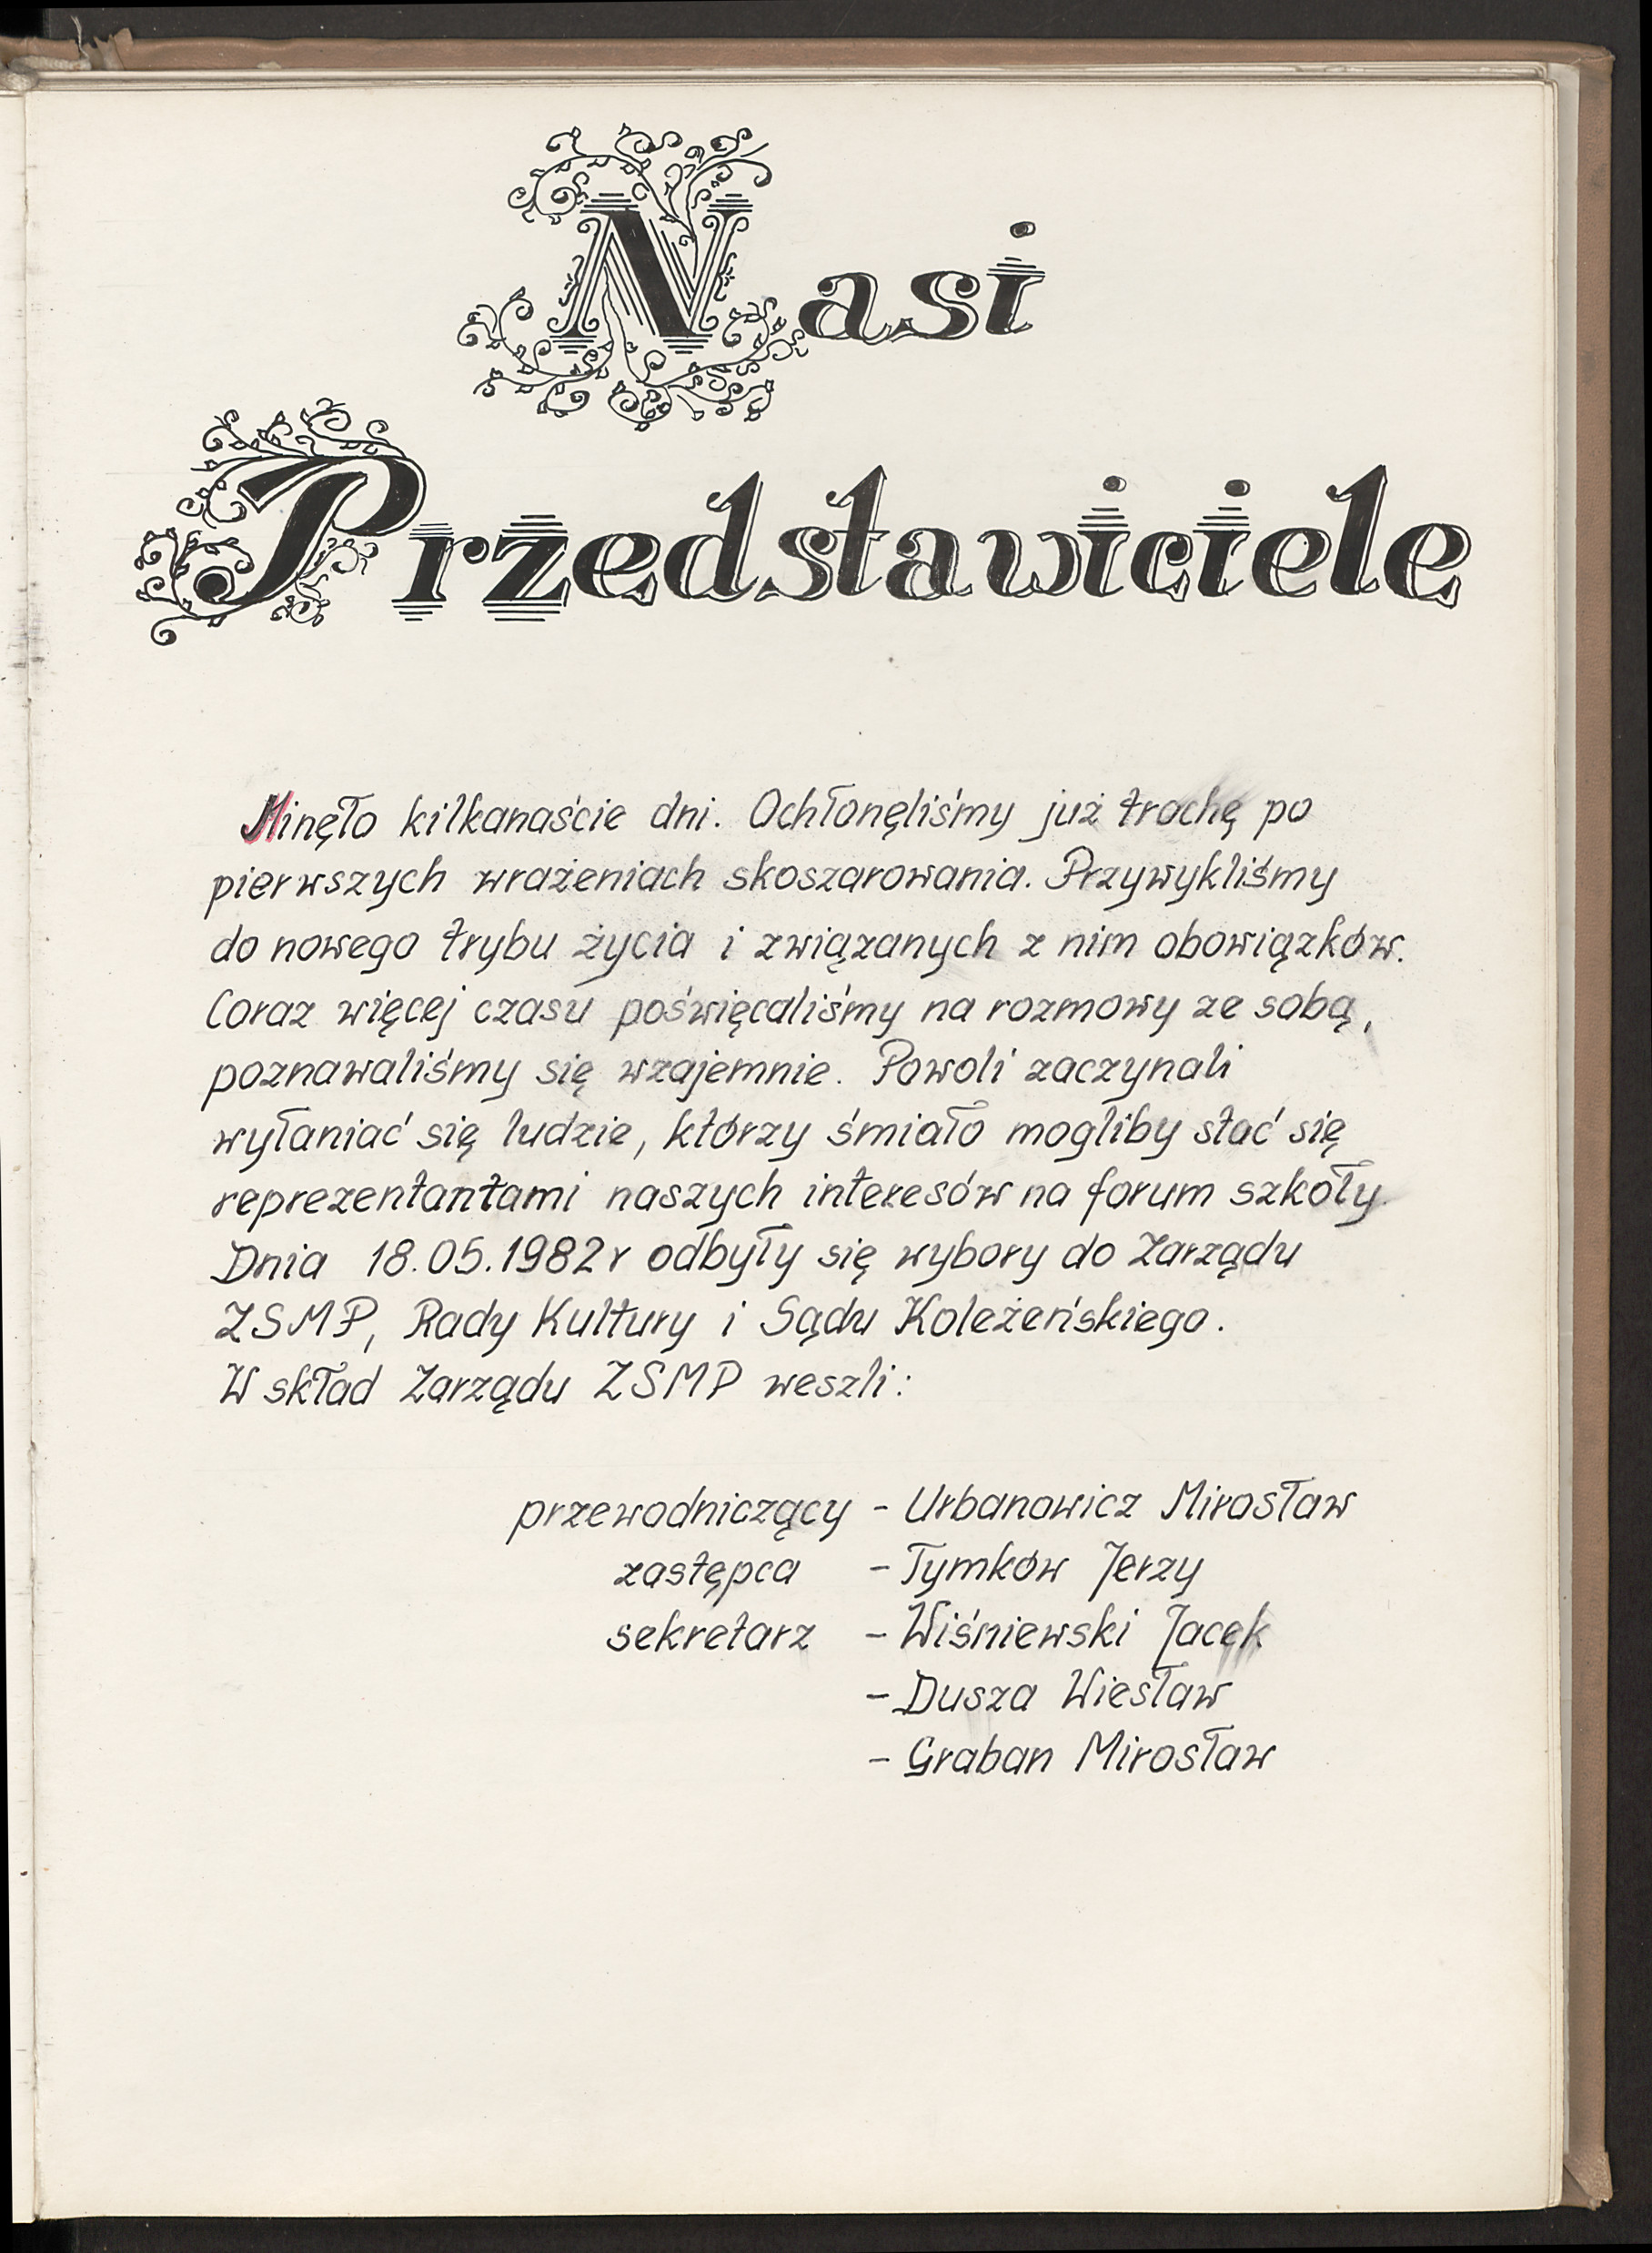 Nasi
Przedstawiciele
Minęło kilkanaście dni. Ochłonęliśmy już trochę po
pierwszych wrażeniach skoszarowania. Przywykliśmy
do nowego trybu życia i związanych z nim obowiązków.
Coraz więcej czasu poświęcaliśmy na rozmowy ze sobą,
poznawaliśmy się wzajemnie. Powoli zaczynali
wyłaniać się ludzie, którzy śmiało mogliby stać się
reprezentantami naszych interesów na forum szkoły.
Dnia 18.05.1982r odbyły się wybory do Zarządu
ZSMP, Rady Kultury i Sądu Koleżeńskiego.
W skład Zarządu ZSMP weszli:
przewodniczący - Urbanowicz Mirosław
zastępca - Tymków Jerzy
sekretarz - Wiśniewski Jacek
- Dusza Wiesław
- Graban Mirosław